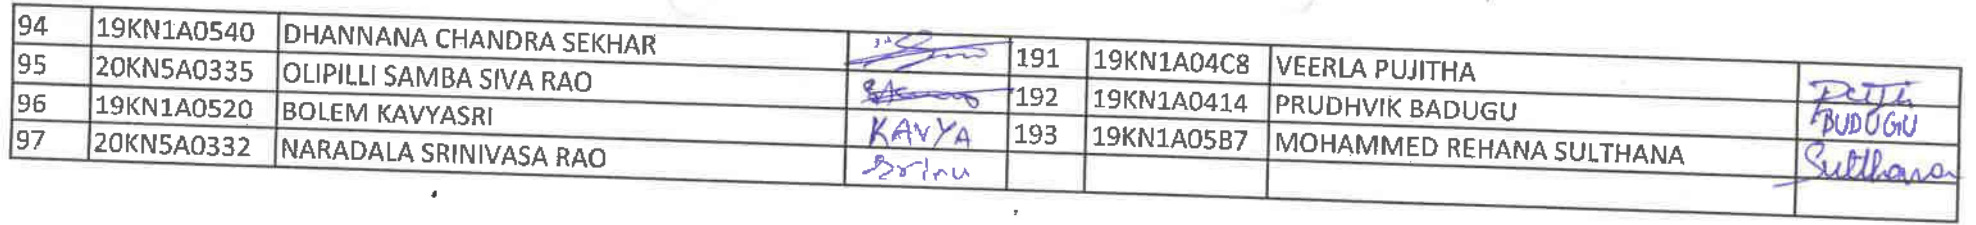 94 19KN1A0540 DHANNANA CHANDRA SEKHAR 191 19KN1A04C8 VEERLA PUJITHA
95 20KN5A0335 OLIPILLI SAMBA SIVA RAO 192 19KN1A0414 PRUDHVIK BADUGU BUDUGU
96 19KN1A0520 BOLEM KAVYASRI KAVYA 193 19KN1A05B7 MOHAMMED REHANA SULTHANA Sulthana
97 20KN5A0332 NARADALA SRINIVASA RAO Srinu